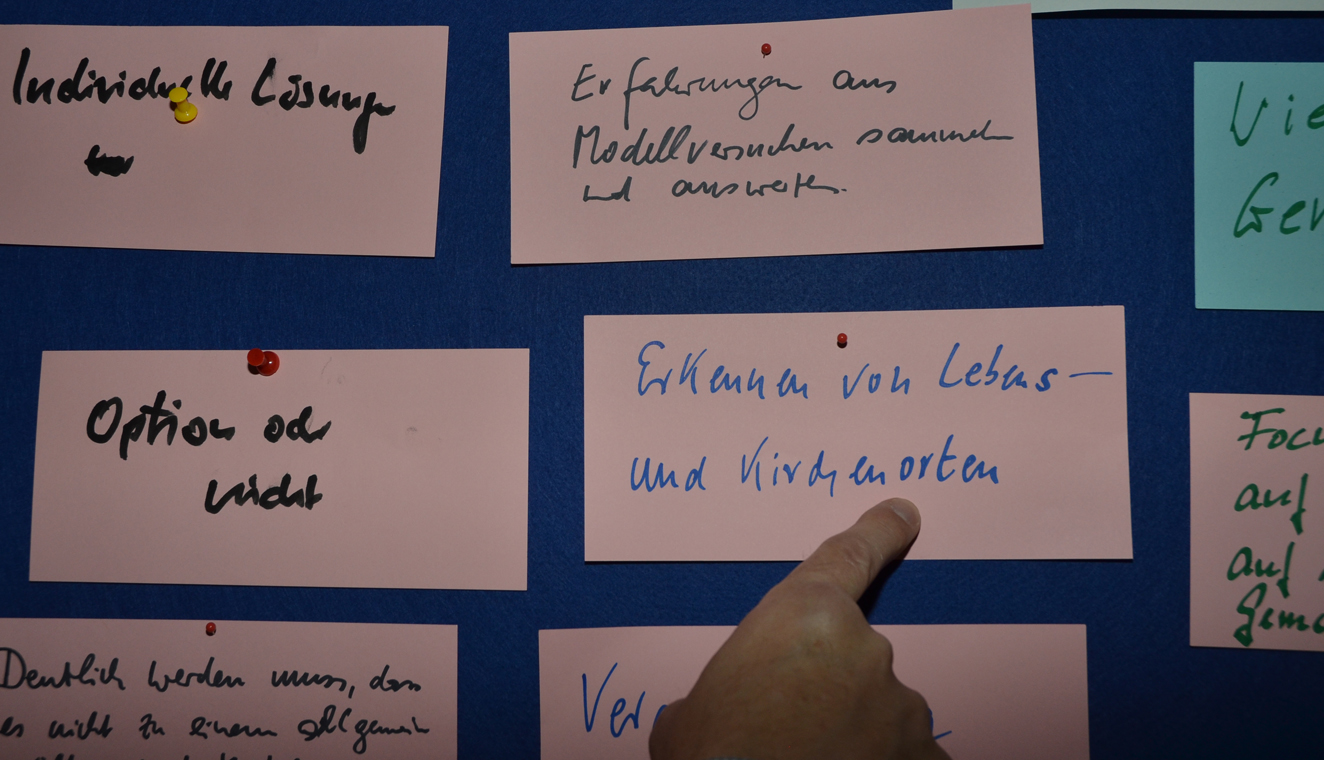 Individuelle Lösungen
Erfahrungen aus
Modellversuchen sammeln
und auswerten.
Option oder
nicht
Erkennen von Lebens—
und Kirchenorten
auf
auf
Deutlich werden muss, dass
es nicht zu einem allgemein